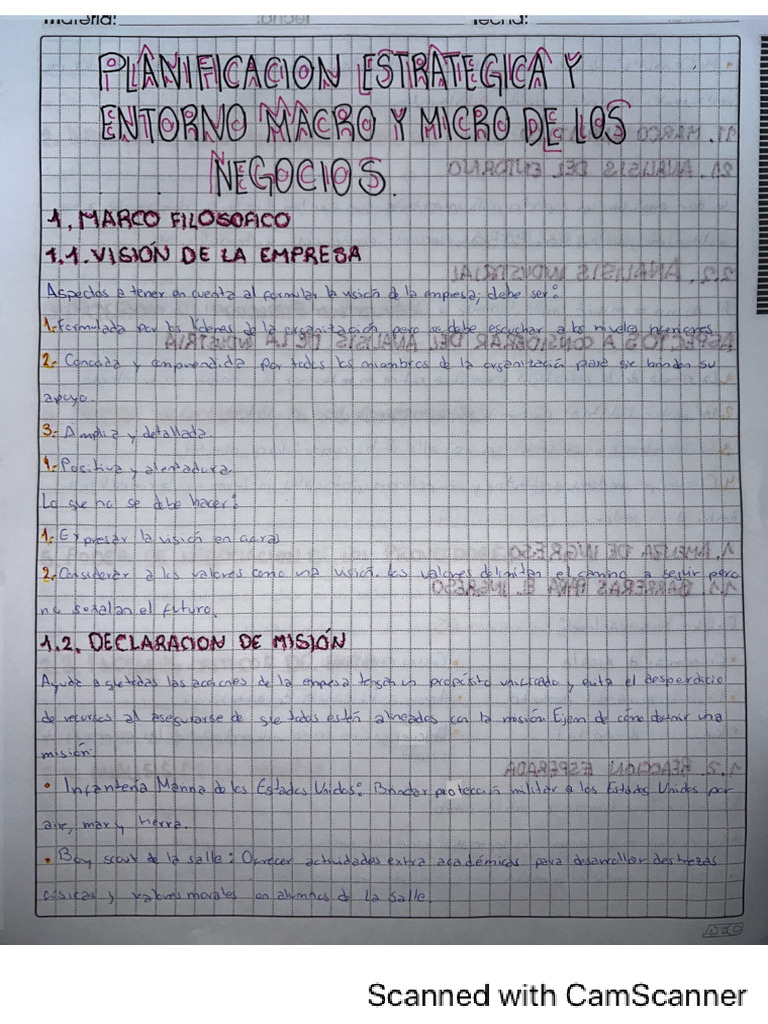 PLANIFICACION ESTRATEGICA Y
ENTORNO MACRO Y MICRO DE LOS
NEGOCIOS.
1. MARCO FILOSOFICO
1.1. VISIÓN DE LA EMPRESA
Aspectos a tener en cuenta al formular la visión de la empresa; debe ser:
1.- Formulada por los líderes de la organización, pero se debe escuchar a los niveles inferiores.
2.- Conocida y comprendida por todos los miembros de la organización para que brinden su
apoyo.
3.- Amplia y detallada.
4.- Positiva y alentadora.
Lo que no se debe hacer:
1.- Expresar la visión en
2.- Considerar a los valores como una visión. los valores delimitan el camino a seguir pero
no señalan el futuro.
1.2. DECLARACION DE MISIÓN
Ayuda a que todas las acciones de la empresa tengan un propósito unificado y evita el desperdicio
de recursos al asegurarse de que todos estén alineados con la misión. Ejem de cómo definir una
misión:
• Infantería Marina de los Estados Unidos: Brindar protección militar a los Estados Unidos por
aire, mar y tierra.
• Boy scout de la salle: Ofrecer actividades extra académicas para desarrollar destrezas
físicas y valores morales en alumnos de la Salle.
Scanned with CamScanner